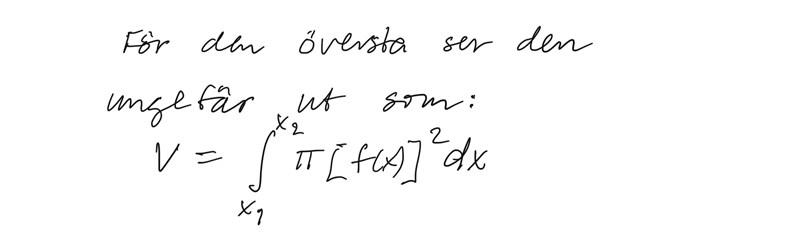 För den översta ser den
ungefär ut som:
V = ∫_{x_1}^{x_2} π[f(x)]^2 dx